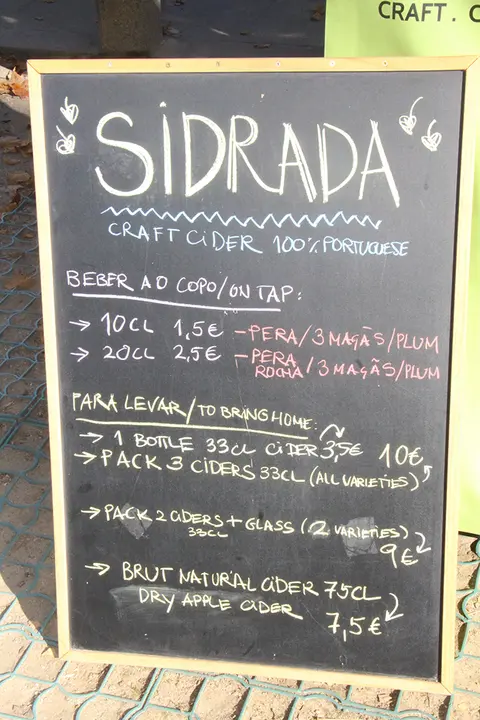 CRAFT. C
SiDRADA
CRAFT CiDER 100% PORTUGUESE
BEBER AO COPO/ON TAP:
→ 10CL 1,5€ - PERA/3 MAÇÃS/PLUM
→ 20CL 2,5€ - PERA ROCHA/3 MAÇÃS/PLUM
PARA LEVAR/TO BRING HOME:
→ 1 BOTTLE 33CL CiDER 3,5€
→ PACK 3 CiDERS 33CL (ALL VARiETiES) 10€
→ PACK 2 CiDERS + GLASS (2 VARiETiES)
33CL
9€
→ BRUT NATURAL CiDER 75CL
DRY APPLE CiDER
7,5€